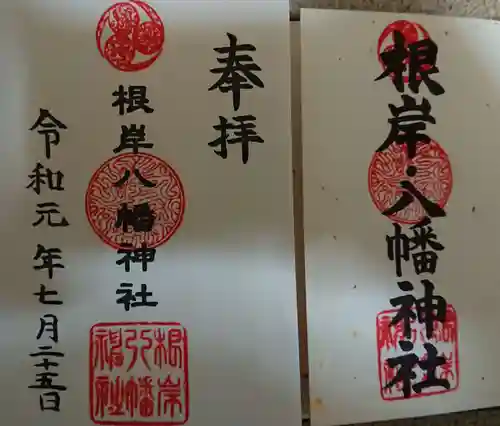 奉拝
根岸八幡神社
令和元年七月二十五日
根岸八幡神社
根岸・八幡神社